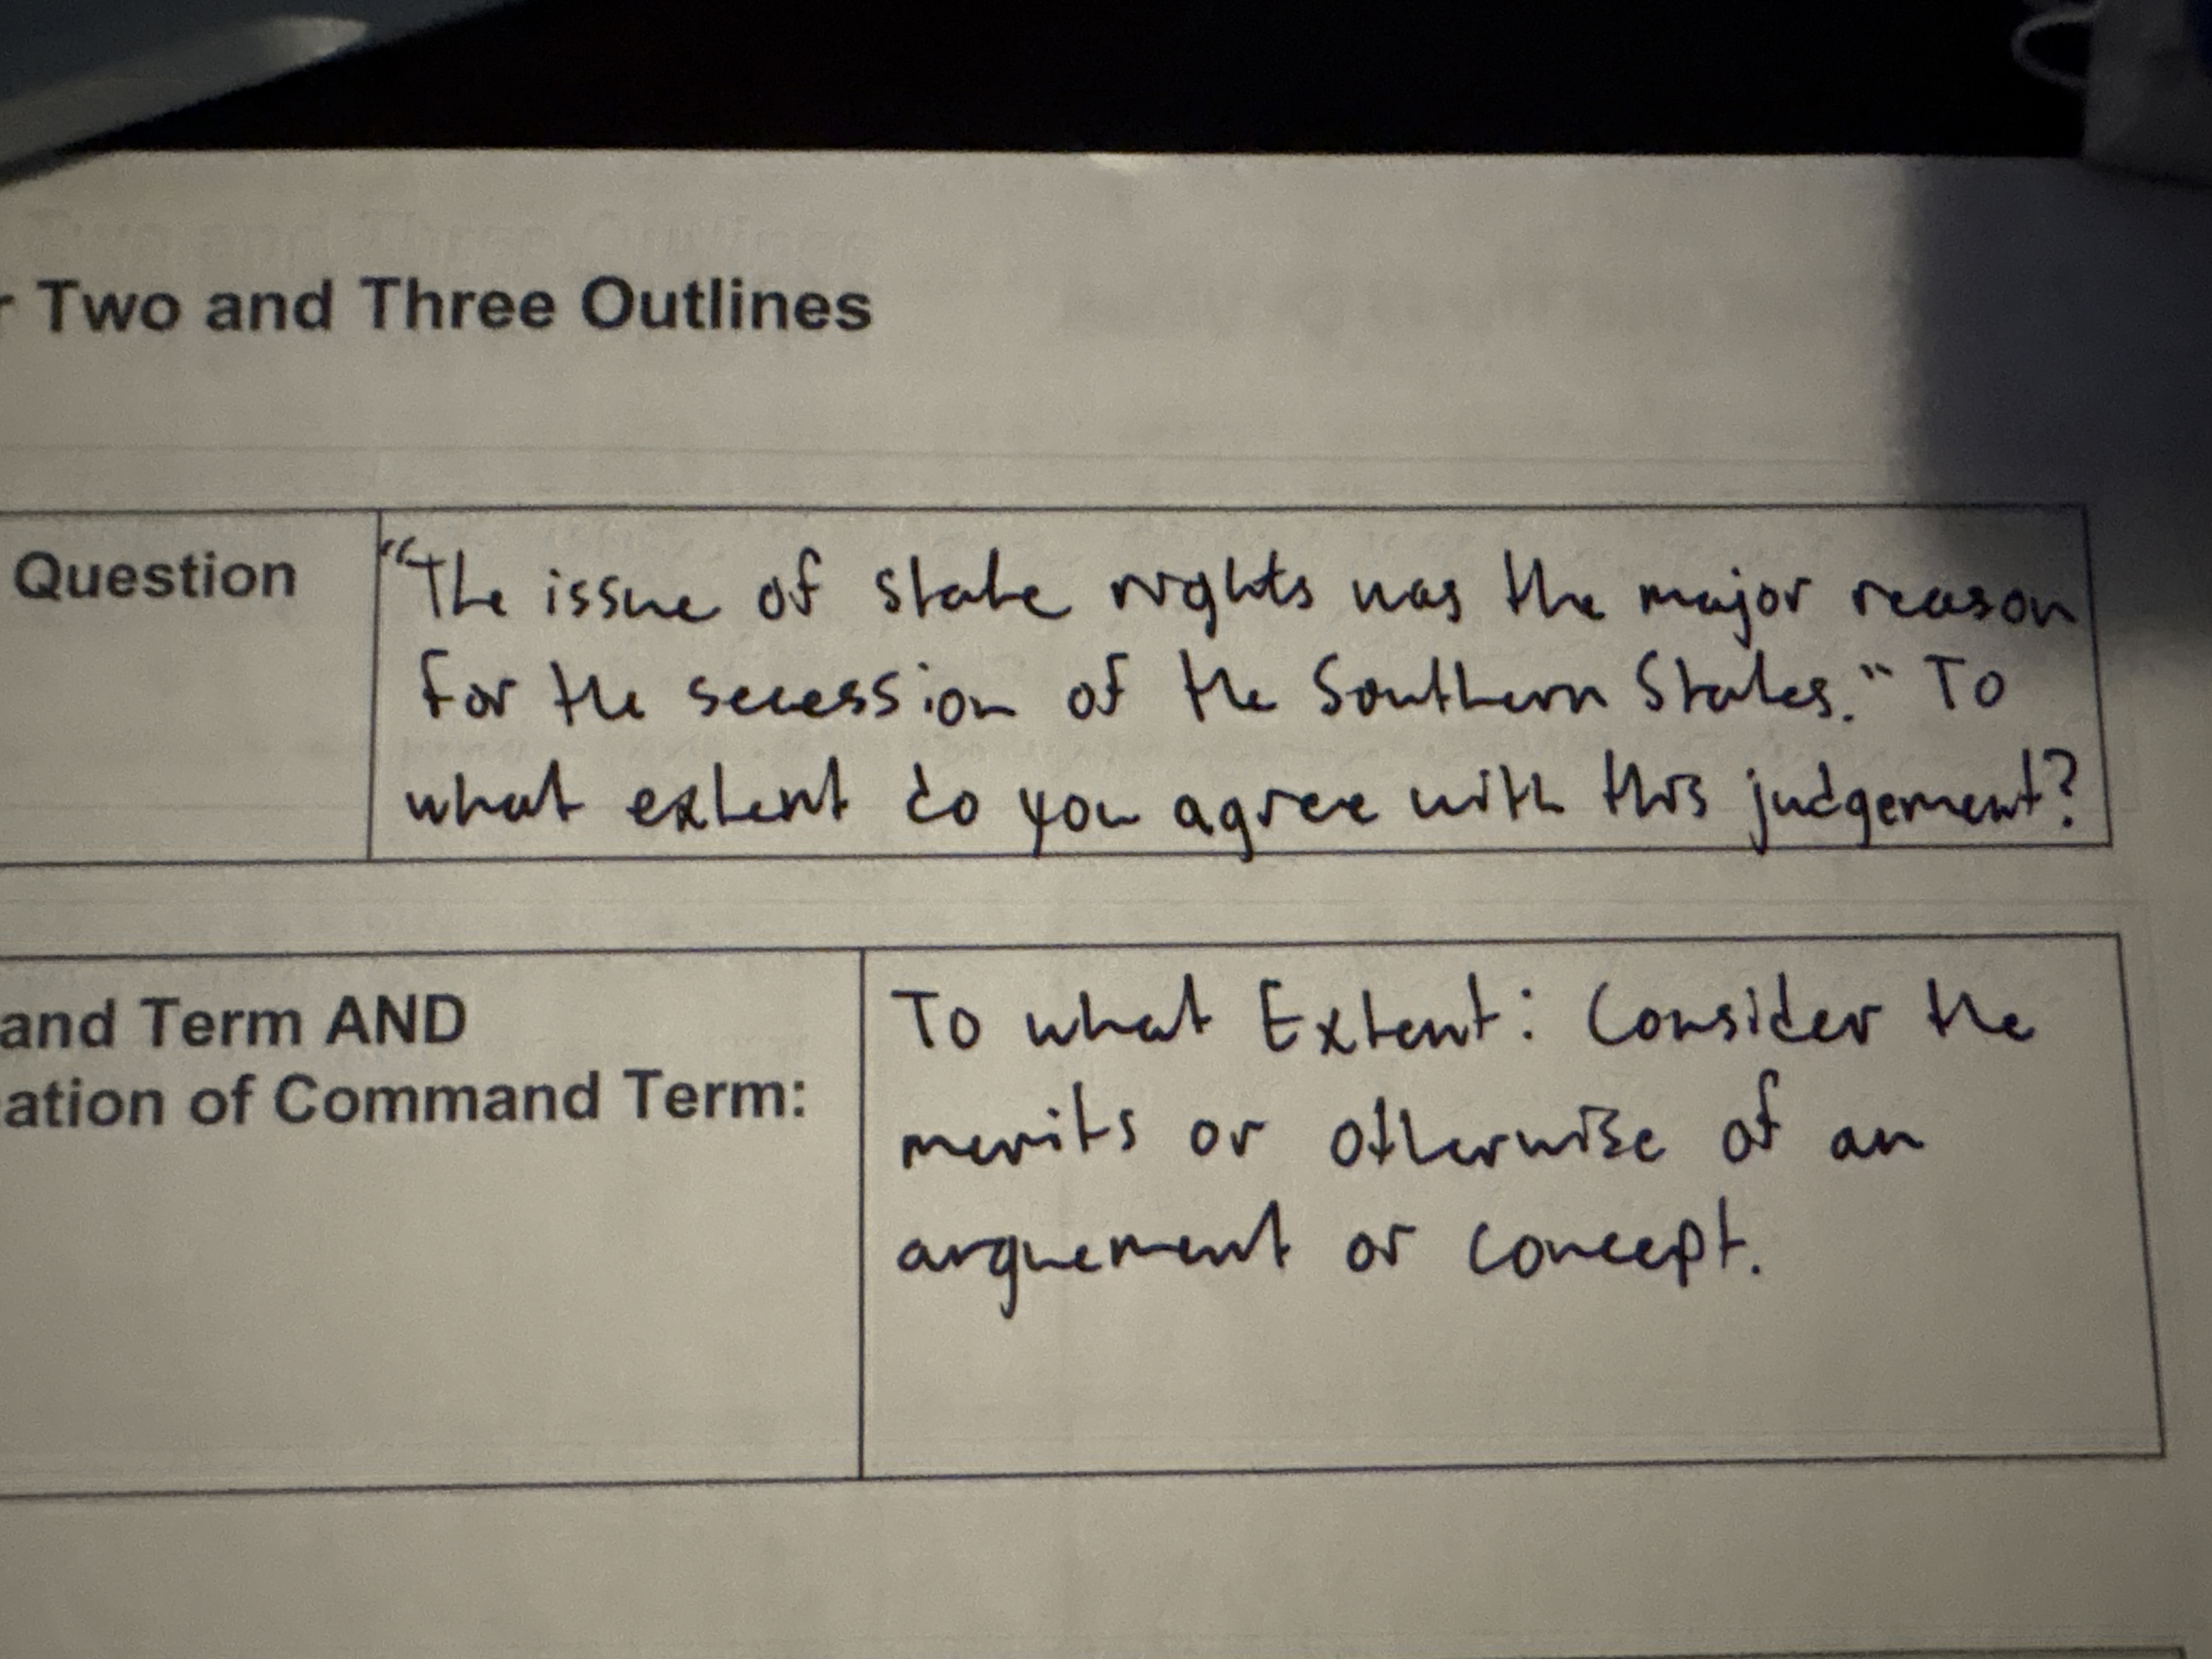 r Two and Three Outlines
Question
"The issue of state rights was the major reason
for the secession of the Southern States." To
what extent do you agree with this judgement?
and Term AND
ation of Command Term:
To what Extent: Consider the
merits or otherwise of an
arguement or concept.